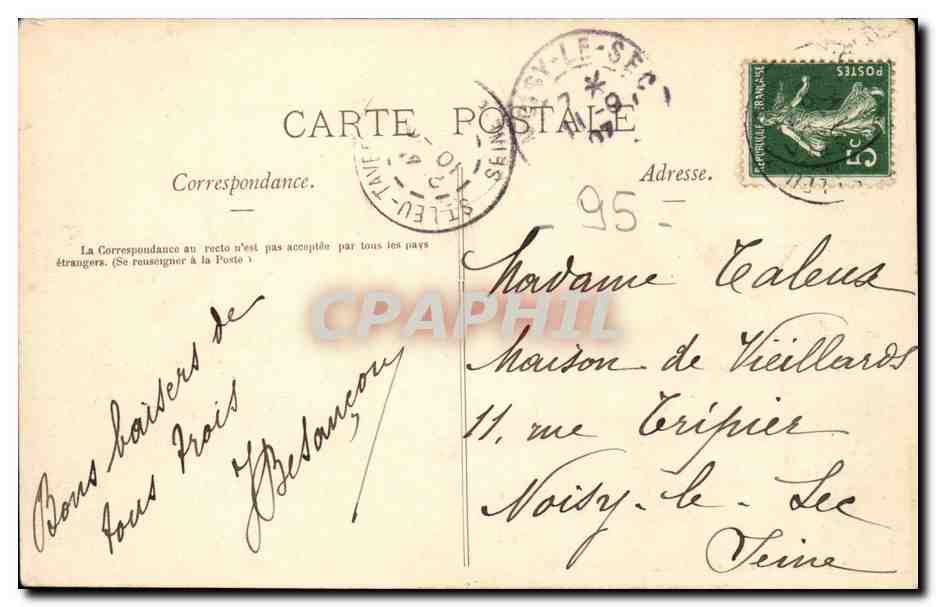 CARTE POSTALE
Correspondance.
Adresse.
La Correspondance au recto n'est pas acceptée par tous les pays
étrangers. (Se renseigner à la Poste)
NOISY-LE-SEC
7 * 
11-9
07
ST LEU-TAVE
SEINE
REPUBLIQUE FRANÇAISE
POSTES
5c
95-
CPAPHIL
Bons baisers de
tous trois
Besançon
Madame Taleux
Maison de Vieillards
11, rue Tripier
Noisy-le-Sec
Seine